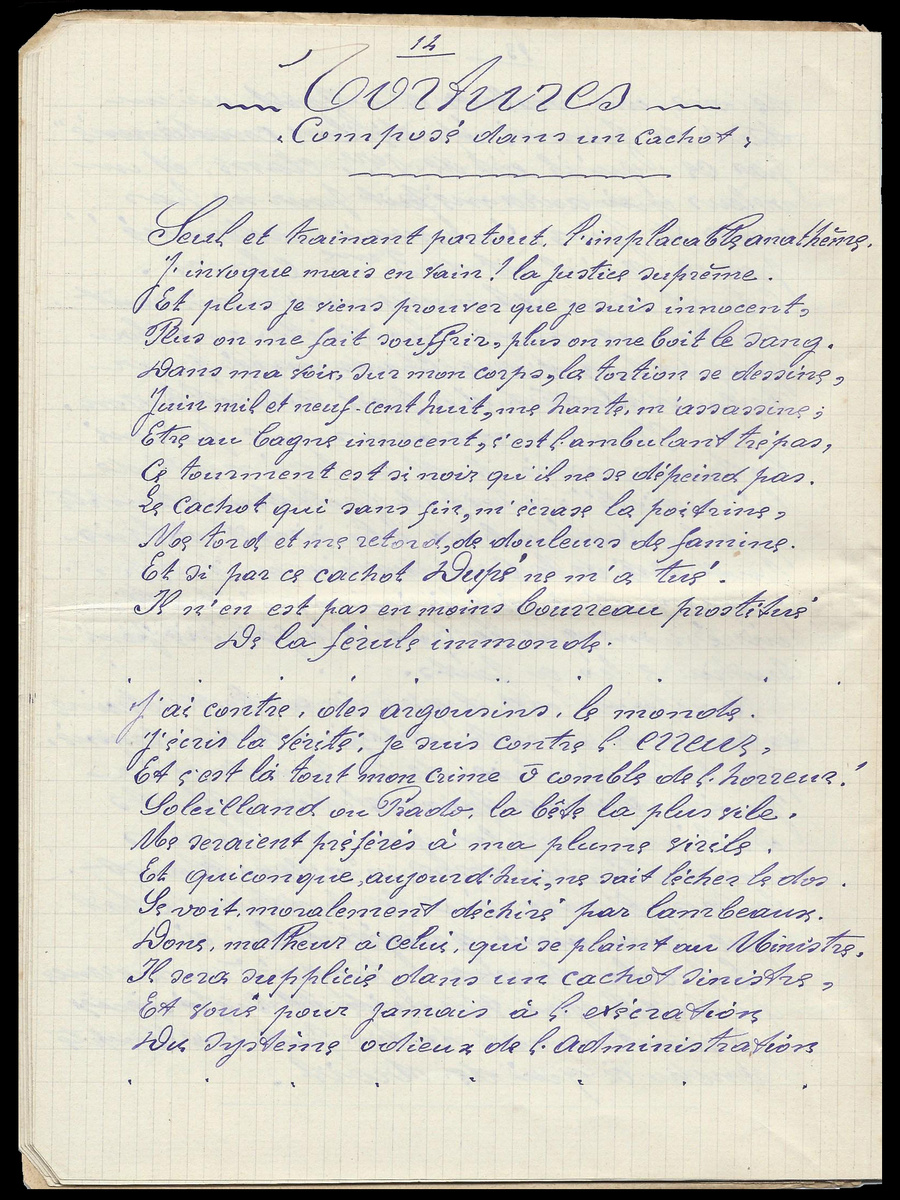 12
Tortures
Composé dans un cachot,
Seul et trainant partout, l'implacable anathême,
J'invoque mais en vain ! la justice suprême.
Et plus je viens prouver que je suis innocent,
Plus on me fait souffrir, plus on me boit le sang.
Dans ma voix, sur mon corps, la tortion se dessine,
Juin mil et neuf-cent huit, me hante, m'assassine ;
Etre au bagne innocent, c'est l'ambulant trépas,
Ce tourment est si noir qu'il ne se dépeind pas.
Le cachot qui sans fin, m'écrase la poitrine,
Me tord et me retord, de douleurs de famine.
Et si par ce cachot Dupé ne m'a tué.
Il n'en est pas en moins bourreau prostitué
De la férule immonde.
J'ai contre, des argousins, le monde.
J'écris la vérité, je suis contre l'erreur,
Et c'est là tout mon crime ô comble de l'horreur !
Soleilland ou Prado, la bête la plus vile.
Me seraient préférés à ma plume virile.
Et quiconque, aujourd'hui, ne sait lécher le dos.
Se voit, moralement déchiré par lambeaux.
Donc, malheur à celui, qui se plaint au Ministre,
Il sera supplicié dans un cachot sinistre,
Et voué pour jamais à l'exécration
Du système odieux de l'Administration